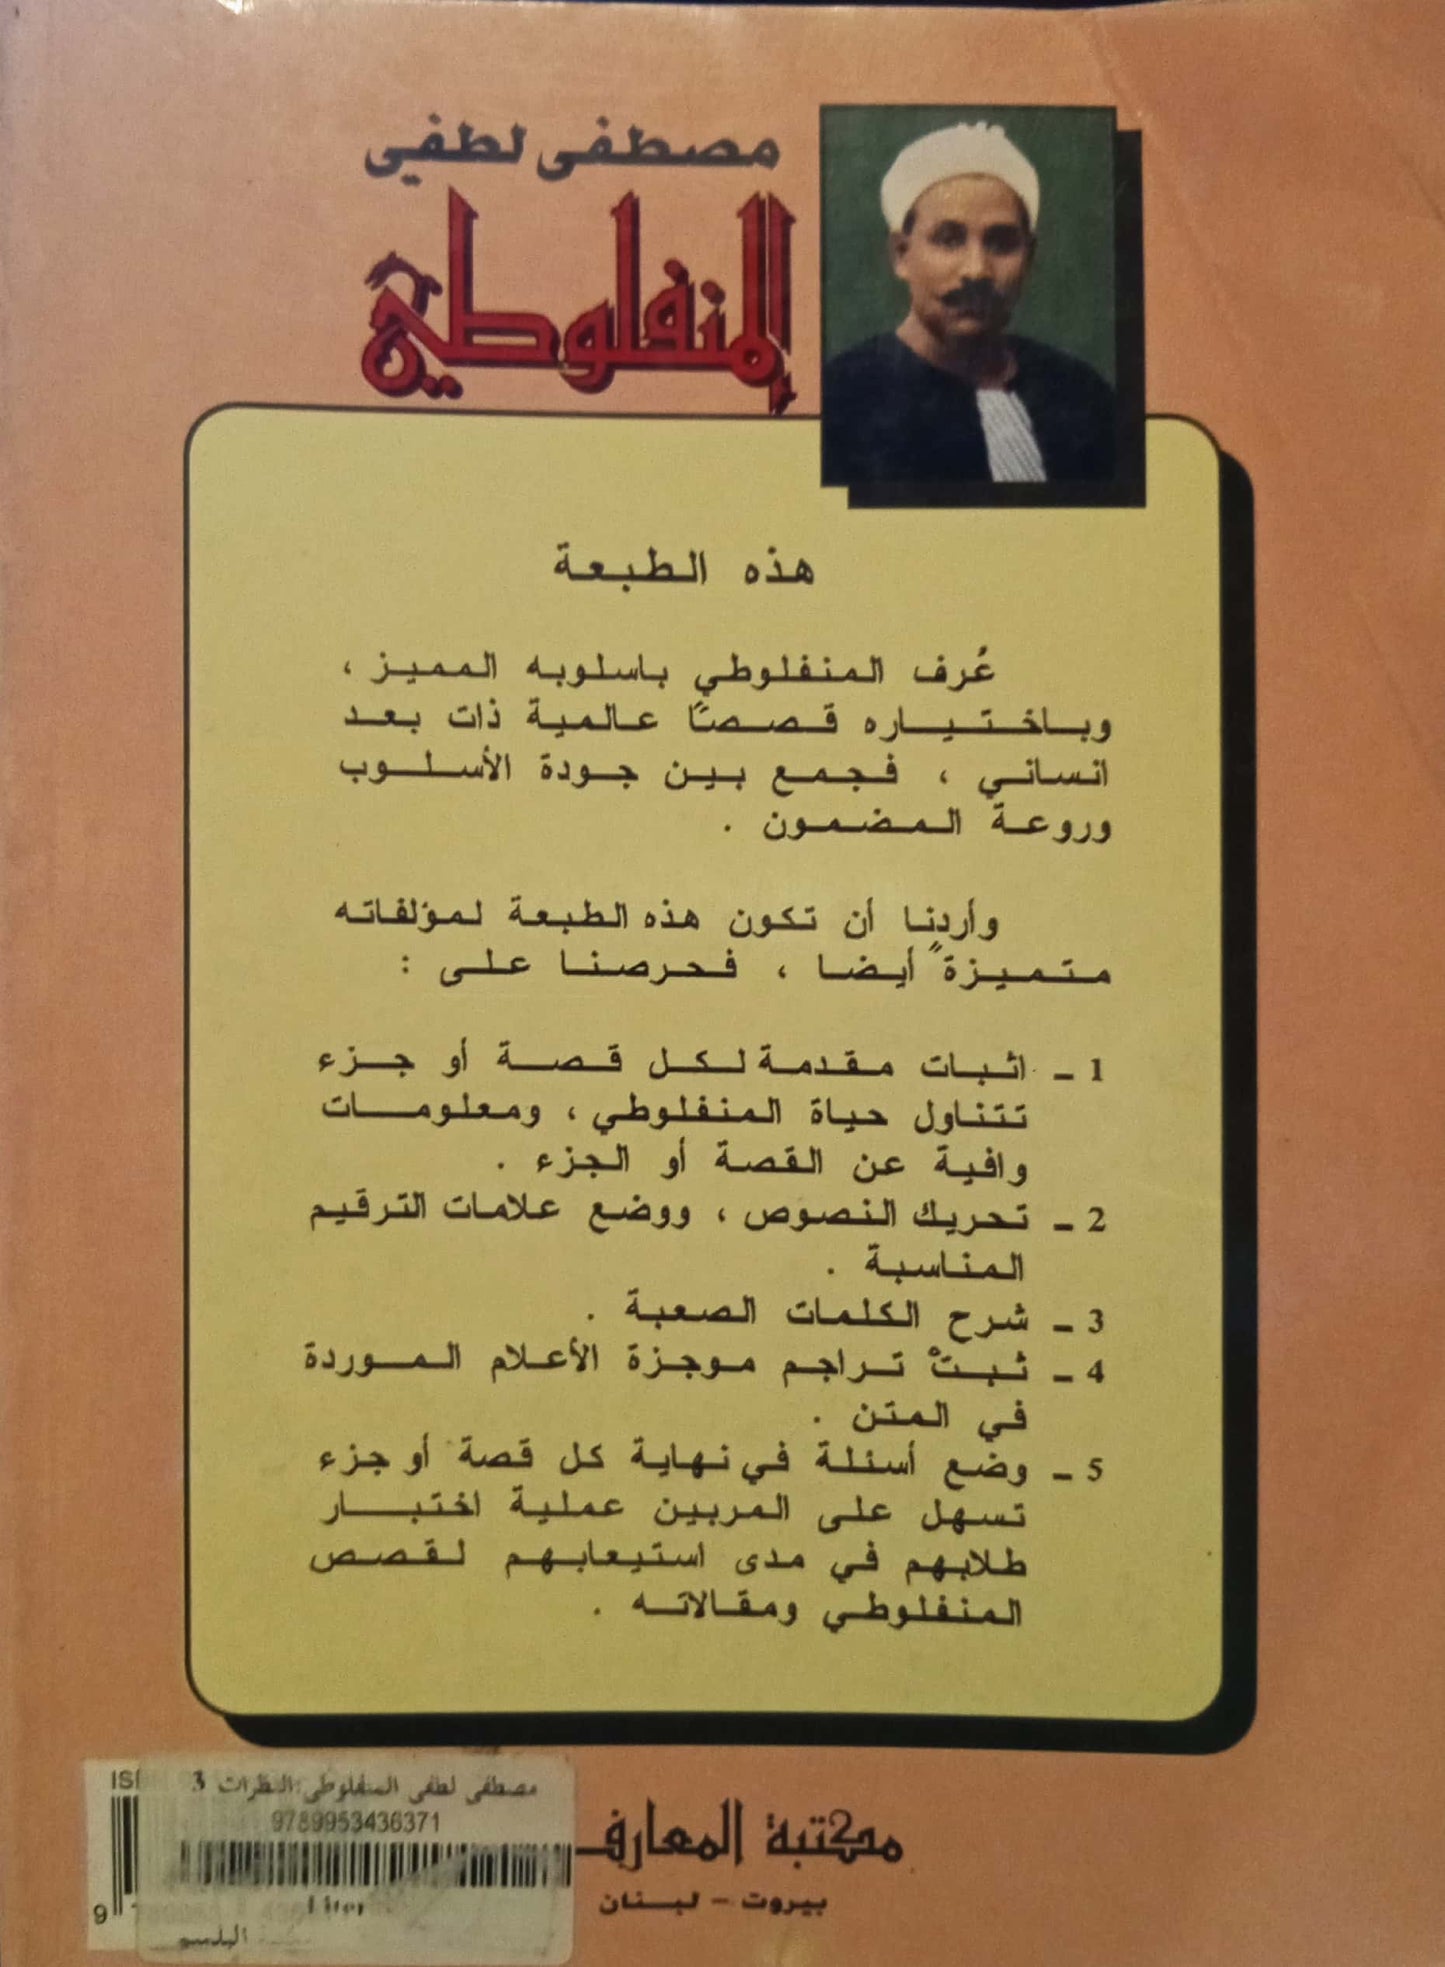 مصطفى لطفي
المنفلوطي
هذه الطبعة
عُرف المنفلوطي باسلوبه المميز ،
وباختياره قصصًا عالمية ذات بعد
انساني ، فجمع بين جودة الأسلوب
وروعة المضمون .
وأردنا أن تكون هذه الطبعة لمؤلفاته
متميزةً أيضا ، فحرصنا على :
1 - اثبات مقدمة لكل قصة أو جزء
تتناول حياة المنفلوطي ، ومعلومات
وافية عن القصة أو الجزء .
2 - تحريك النصوص ، ووضع علامات الترقيم
المناسبة .
3 - شرح الكلمات الصعبة .
4 - ثبتْ تراجم موجزة الأعلام الموردة
في المتن .
5 - وضع أسئلة في نهاية كل قصة أو جزء
تسهل على المربين عملية اختبار
طلابهم في مدى استيعابهم لقصص
المنفلوطي ومقالاته .
مصطفى لطفى المنفلوطى النظرات 3
9789953436371
Liter
مكتبة المعارف
بيروت - لبنان